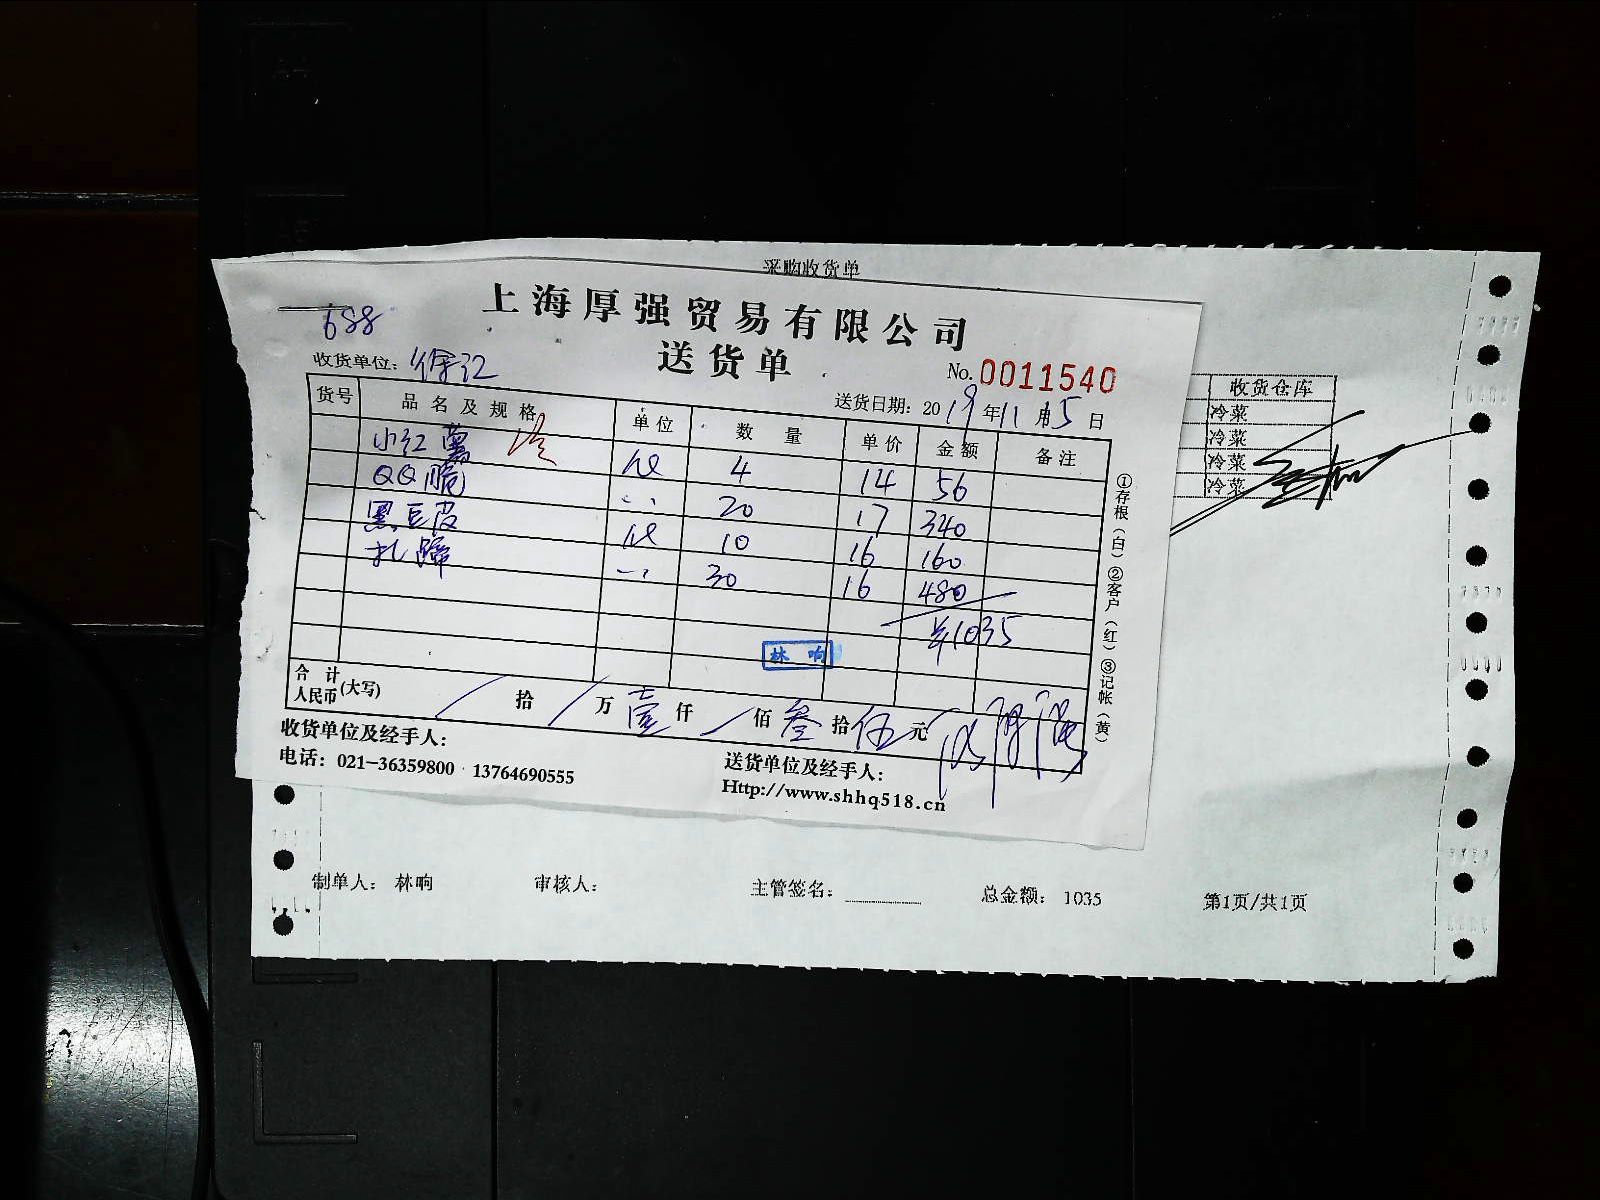 采购收货单
上海厚强贸易有限公司
688
送货单
收货单位：徐汇
No. 0011540
送货日期：2019年11月15日
货号 品名及规格 单位 数量 单价 金额 备注
小红薯 冷 袋 4 14 56
QQ脆 〃 20 17 340
黑豆皮 袋 10 16 160
扎蹄 〃 30 16 480
¥1035
林响
合计人民币(大写) / 拾 / 万 壹 仟 / 佰 叁 拾 伍 元
①存根（白）②客户（红）③记帐（黄）
收货单位及经手人：
送货单位及经手人：
电话：021-36359800 13764690555
Http://www.shhq518.cn
收货仓库
冷菜
冷菜
冷菜
冷菜
制单人：林响 审核人： 主管签名： 总金额：1035 第1页/共1页